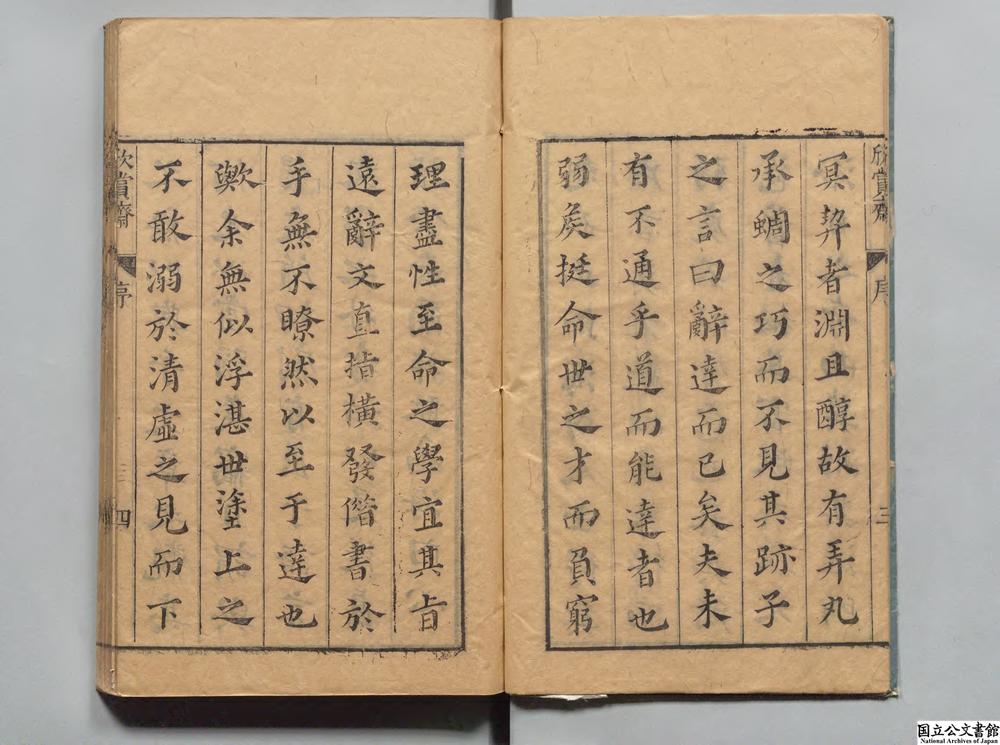 欣賞齋 序 三
冥契者淵且醇故有弄丸
承蜩之巧而不見其跡子
之言曰辭達而已矣夫未
有不通乎道而能達者也
弱矦挺命世之才而負窮
理盡性至命之學宜其旨
遠辭文直指橫發偕書於
手無不瞭然以至于達也
歟余無似浮湛世塗上之
不敢溺於清虛之見而下
欣賞齋 序 四
国立公文書館
National Archives of Japan